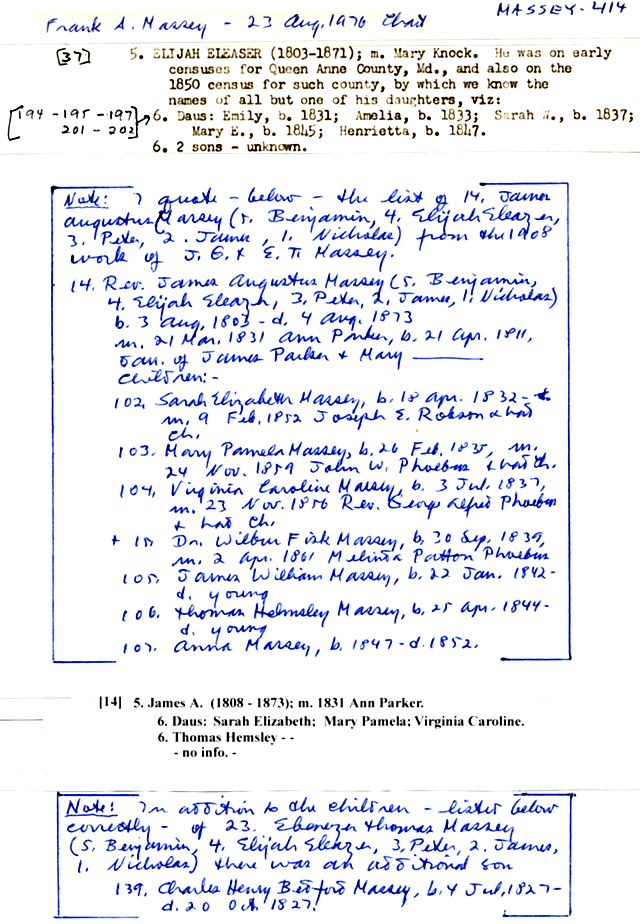 Frank A. Massey - 23 Aug. 1976 Chart
MASSEY-414
[37] 5. ELIJAH ELEASER (1803-1871); m. Mary Knock. He was on early
censuses for Queen Anne County, Md., and also on the
1850 census for such county, by which we know the
names of all but one of his daughters, viz:
[194-195-197 6. Daus: Emily, b. 1831; Amelia, b. 1833; Sarah W., b. 1837;
201-202] Mary E., b. 1845; Henrietta, b. 1847.
6. 2 sons - unknown.
Note: I quote - below - the list of 14. James
Augustus Massey (5. Benjamin, 4. Elijah Eleazer,
3. Peter, 2. James, 1. Nicholas) from the 1908
work of J. G. & E. T. Massey.
14. Rev. James Augustus Massey (5. Benjamin,
4. Elijah Eleazer, 3. Peter, 2. James, 1. Nicholas)
b. 3 Aug. 1803 - d. 4 Aug. 1873
m. 21 Mar. 1831 Ann Parker, b. 21 Apr. 1811,
dau. of James Parker & Mary ———
Children:-
102. Sarah Elizabeth Massey, b. 18 Apr. 1832 -
m. 9 Feb. 1852 Joseph E. Robson & had
ch.
103. Mary Pamela Massey, b. 26 Feb. 1835, m.
24 Nov. 1859 John W. Phoebus & had ch.
104. Virginia Caroline Massey, b. 3 Jul. 1837,
m. 23 Nov. 1856 Rev. George Alfred Phoebus
& had ch.
+ 15. Dr. Wilbur Fisk Massey, b. 30 Sep. 1839,
m. 2 Apr. 1861 Melinta Patton Phoebus
105. James William Massey, b. 22 Jan. 1842-
d. young
106. Thomas Helmsley Massey, b. 25 Apr. 1844-
d. young
107. Anna Massey, b. 1847-d. 1852.
[14] 5. James A. (1808 - 1873); m. 1831 Ann Parker.
6. Daus: Sarah Elizabeth; Mary Pamela; Virginia Caroline.
6. Thomas Hemsley - -
- no info. -
Note: In addition to the children - listed below
correctly - of 23. Ebenezer Thomas Massey
(5. Benjamin, 4. Elijah Eleazer, 3. Peter, 2. James,
1. Nicholas) there was an additional son
139. Charles Henry Bedford Massey, b. 4 Jul. 1827-
d. 20 Oct. 1827.